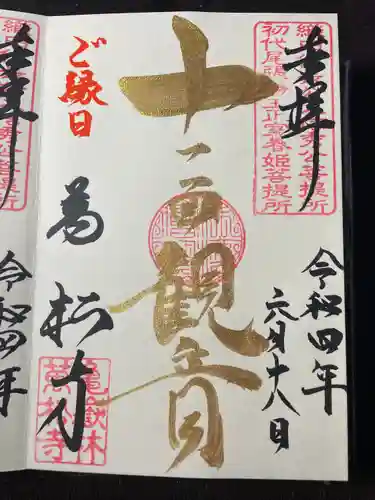 奉拝
初代尾張
正室春姫菩提所
令和四年
六月十八日
十一面観音
ご縁日
萬松寺
亀嶽林
萬松寺
令和四年